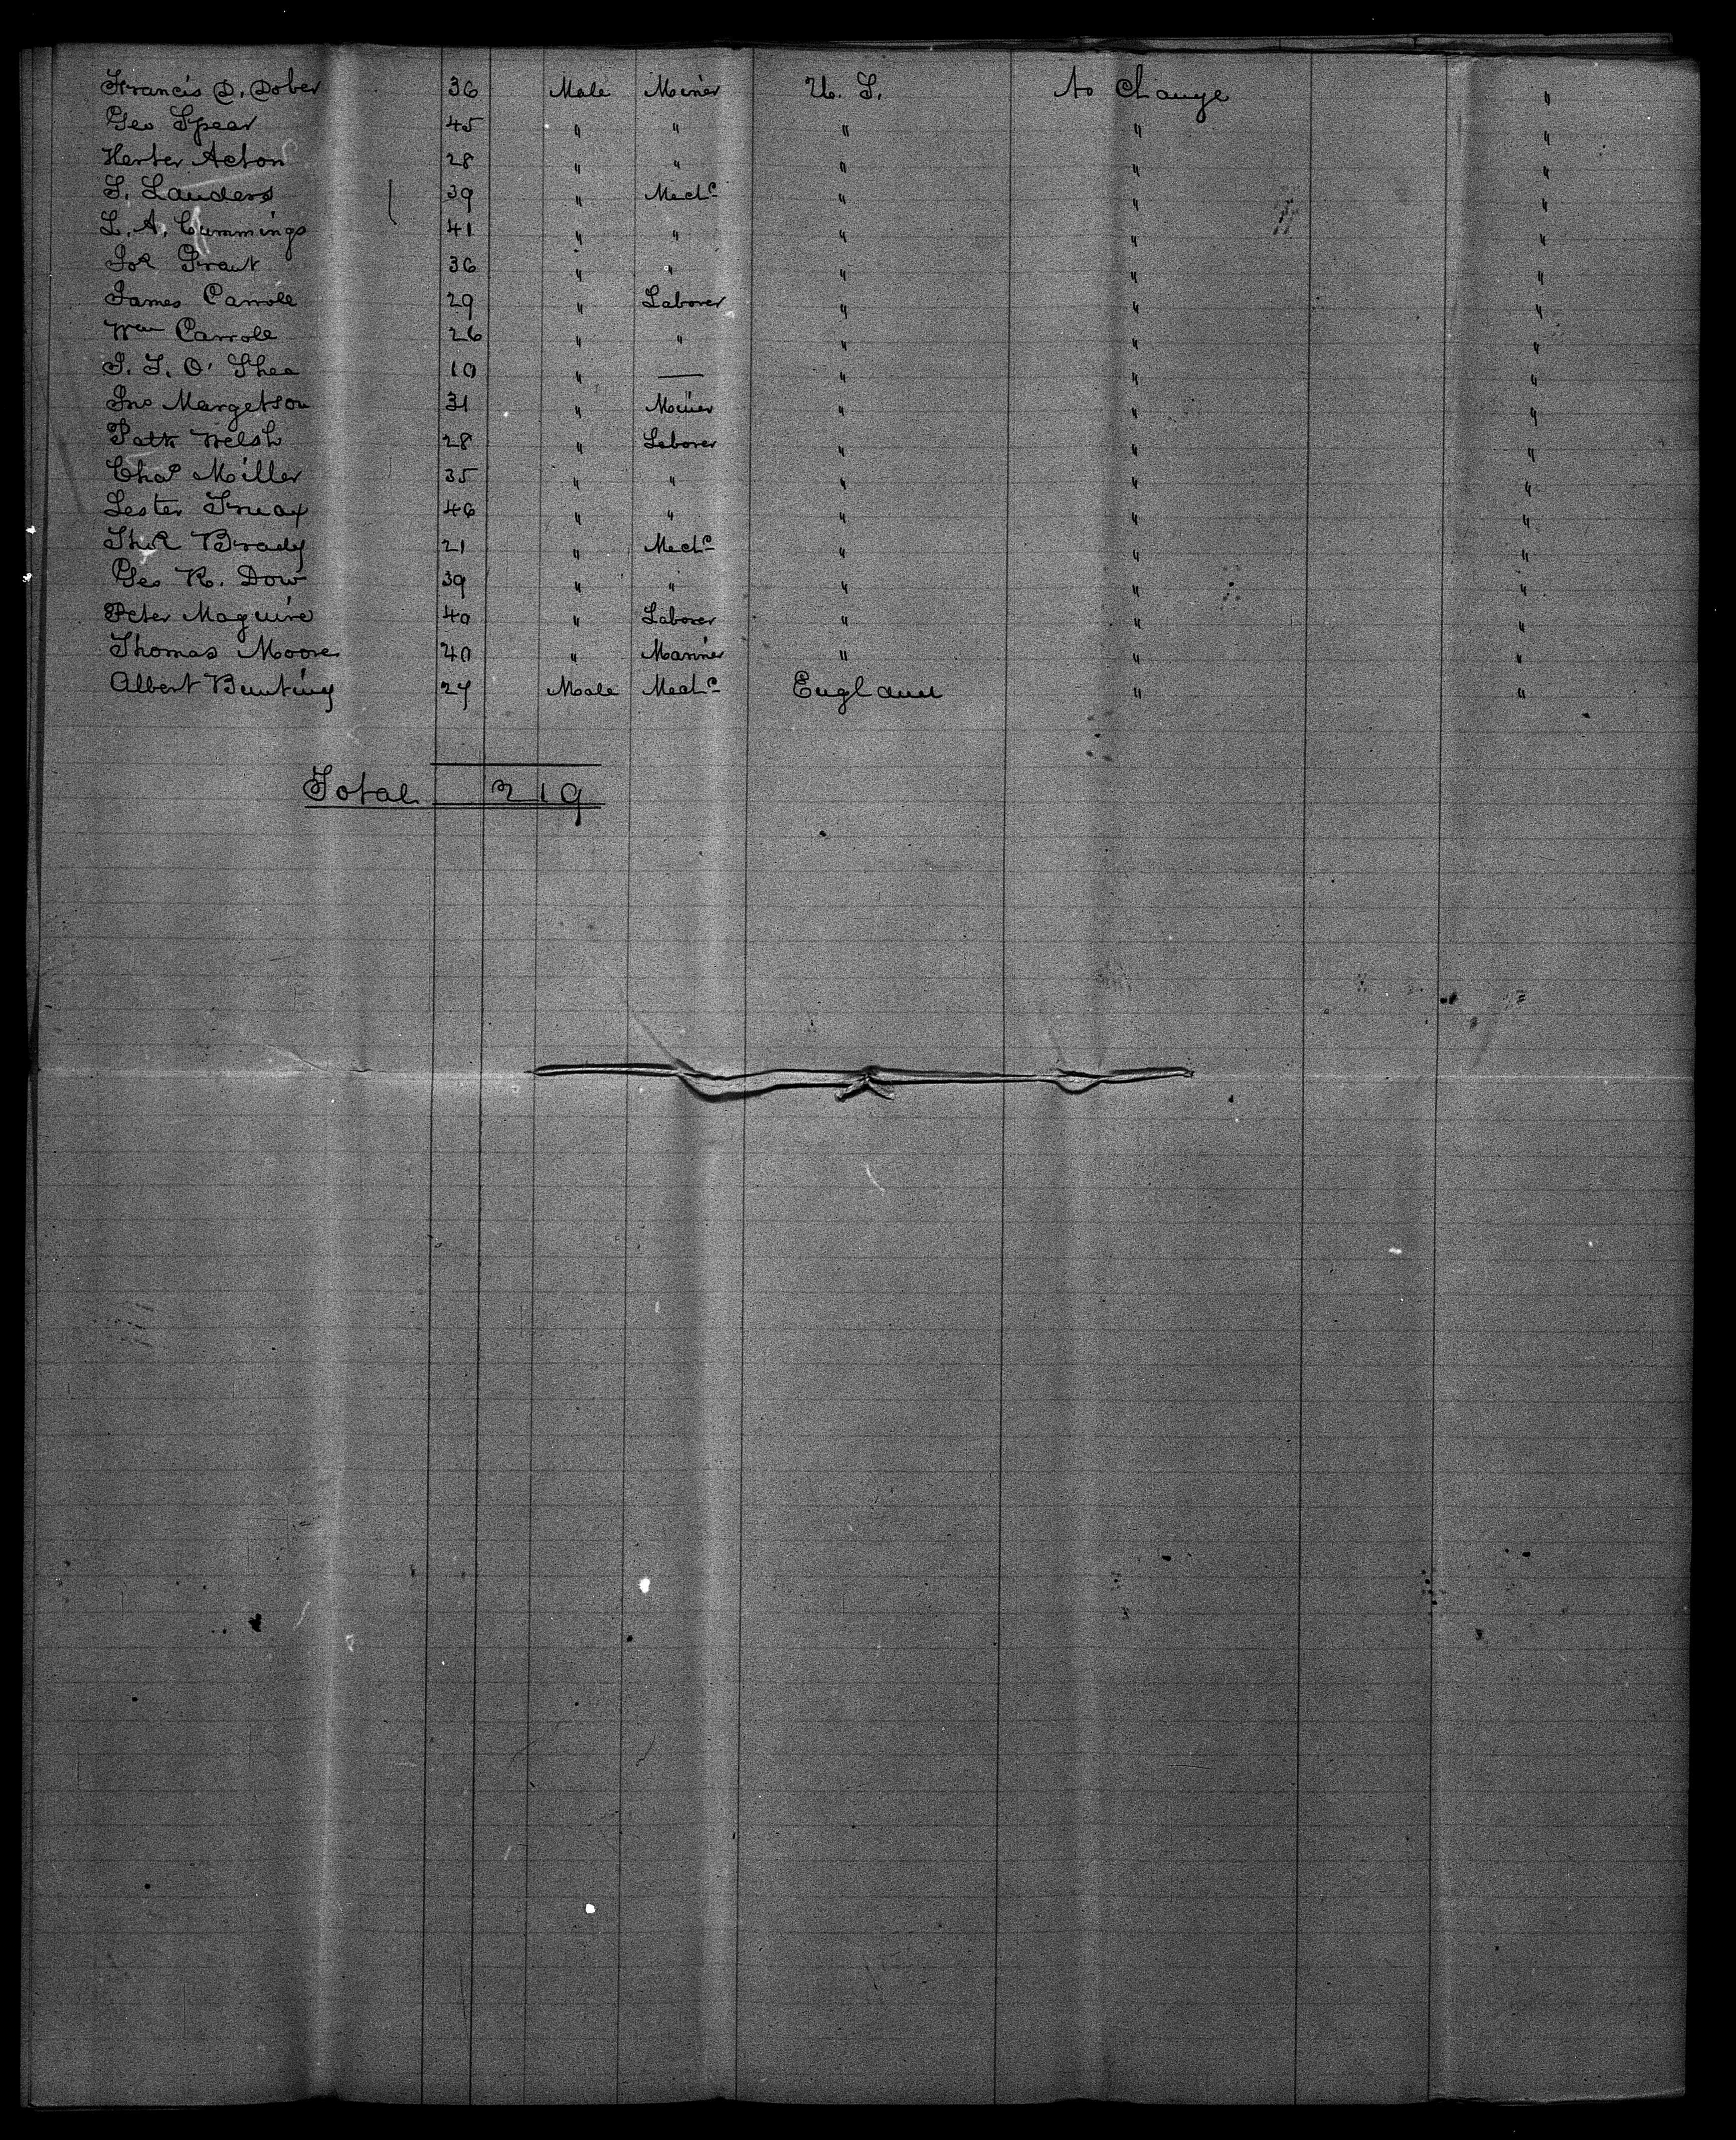 Francis D. Dober 36 Male Miner U. S. to Change "
Geo Spear 45 " " " " "
Herter Acton 28 " " " " "
S. Landers 39 " Mechc " " "
L. A. Cummings 41 " " " " "
Grant 36 " " " " "
James Carroll 29 " Laborer " " "
Wm Carroll 26 " " " " "
O' Shea 10 " — " " "
Jno Margetson 31 " Miner " " "
Patk Welsh 28 " Laborer " " "
Chas Miller 35 " " " " "
Lester Truax 46 " " " " "
Brady 21 " Mechc " " "
Geo R. Dow 39 " " " " "
Peter Maguire 40 " Laborer " " "
Thomas Moore 40 " Mariner " " "
Albert Bunting 27 Male Mechc England " "
Total 219